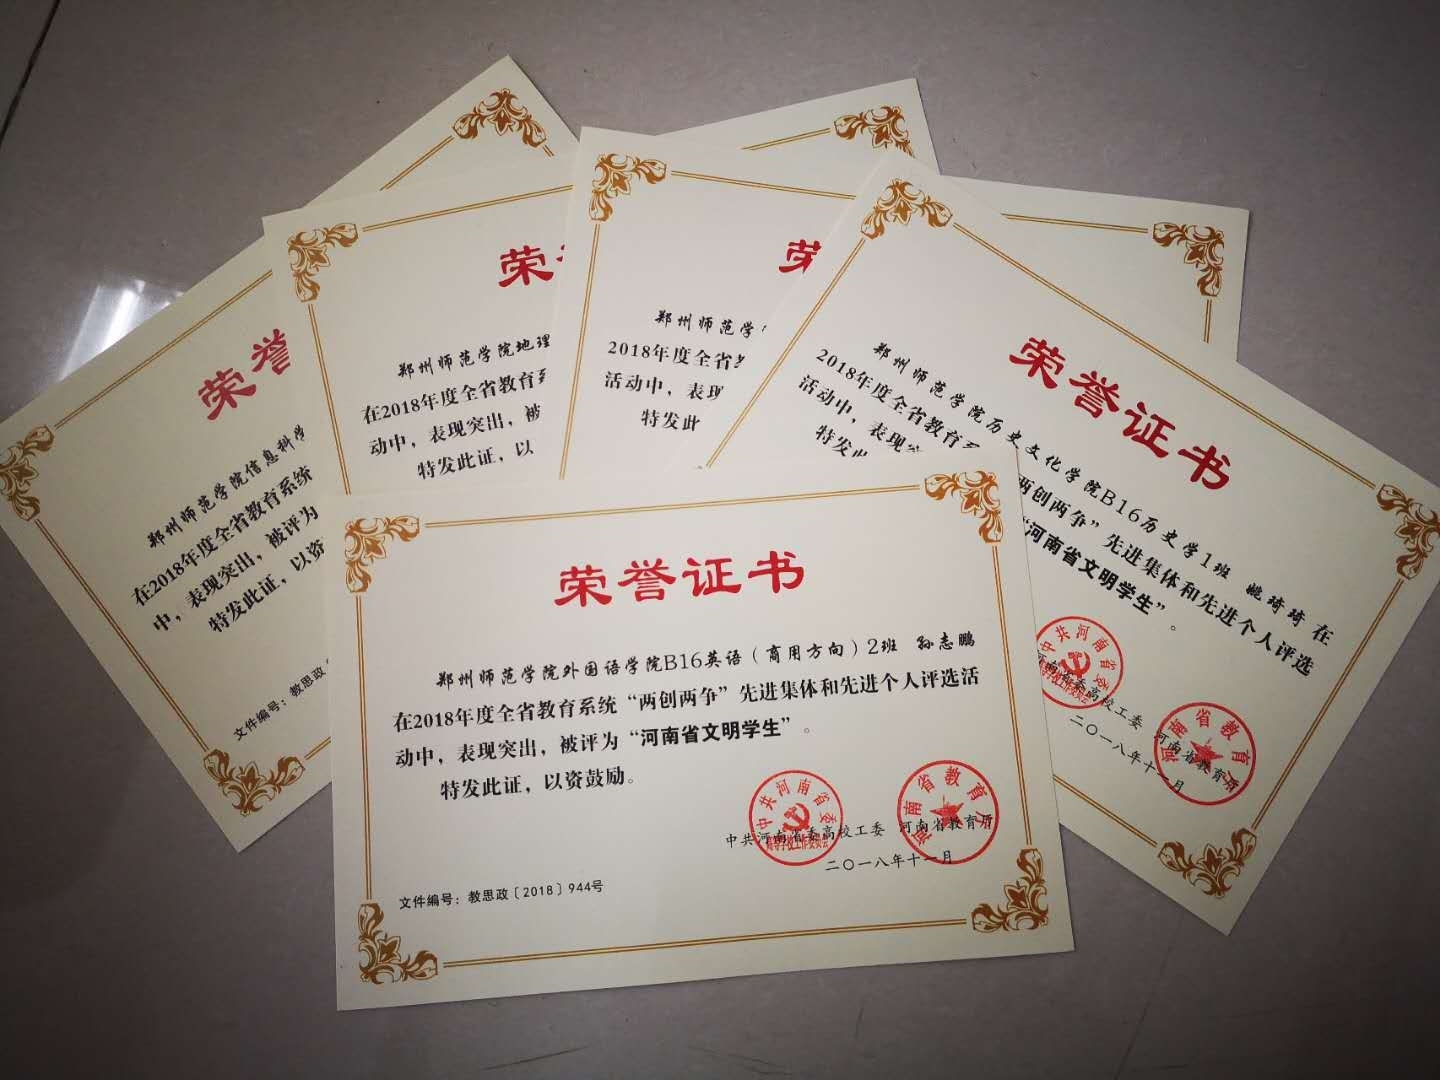 荣
郑州师范学院信息科学
在2018年度全省教育系统
中，表现突出，被评为
特发此证，以资
文件编号：教思政
荣
郑州师范学院地理
在2018年度全省教育系
动中，表现突出，被
特发此证，以
荣
郑州师范学
2018年度全省教
活动中，表现
特发此
荣誉证书
郑州师范学院历史文化学院B16历史学1班 姚琦琦 在
2018年度全省教育系 两创两争”先进集体和先进个人评选
活动中，表现突 “河南省文明学生”。
特发此
中共河南省委
河南省委高校工委 河南省教育厅
河南省教育厅
二〇一八年十一月
荣誉证书
郑州师范学院外国语学院B16英语（商用方向）2班 孙志鹏
在2018年度全省教育系统“两创两争”先进集体和先进个人评选活
动中，表现突出，被评为“河南省文明学生”。
特发此证，以资鼓励。
中共河南省委
高等学校工作委员会
河南省教育厅
中共河南省委高校工委 河南省教育厅
二〇一八年十一月
文件编号：教思政〔2018〕944号